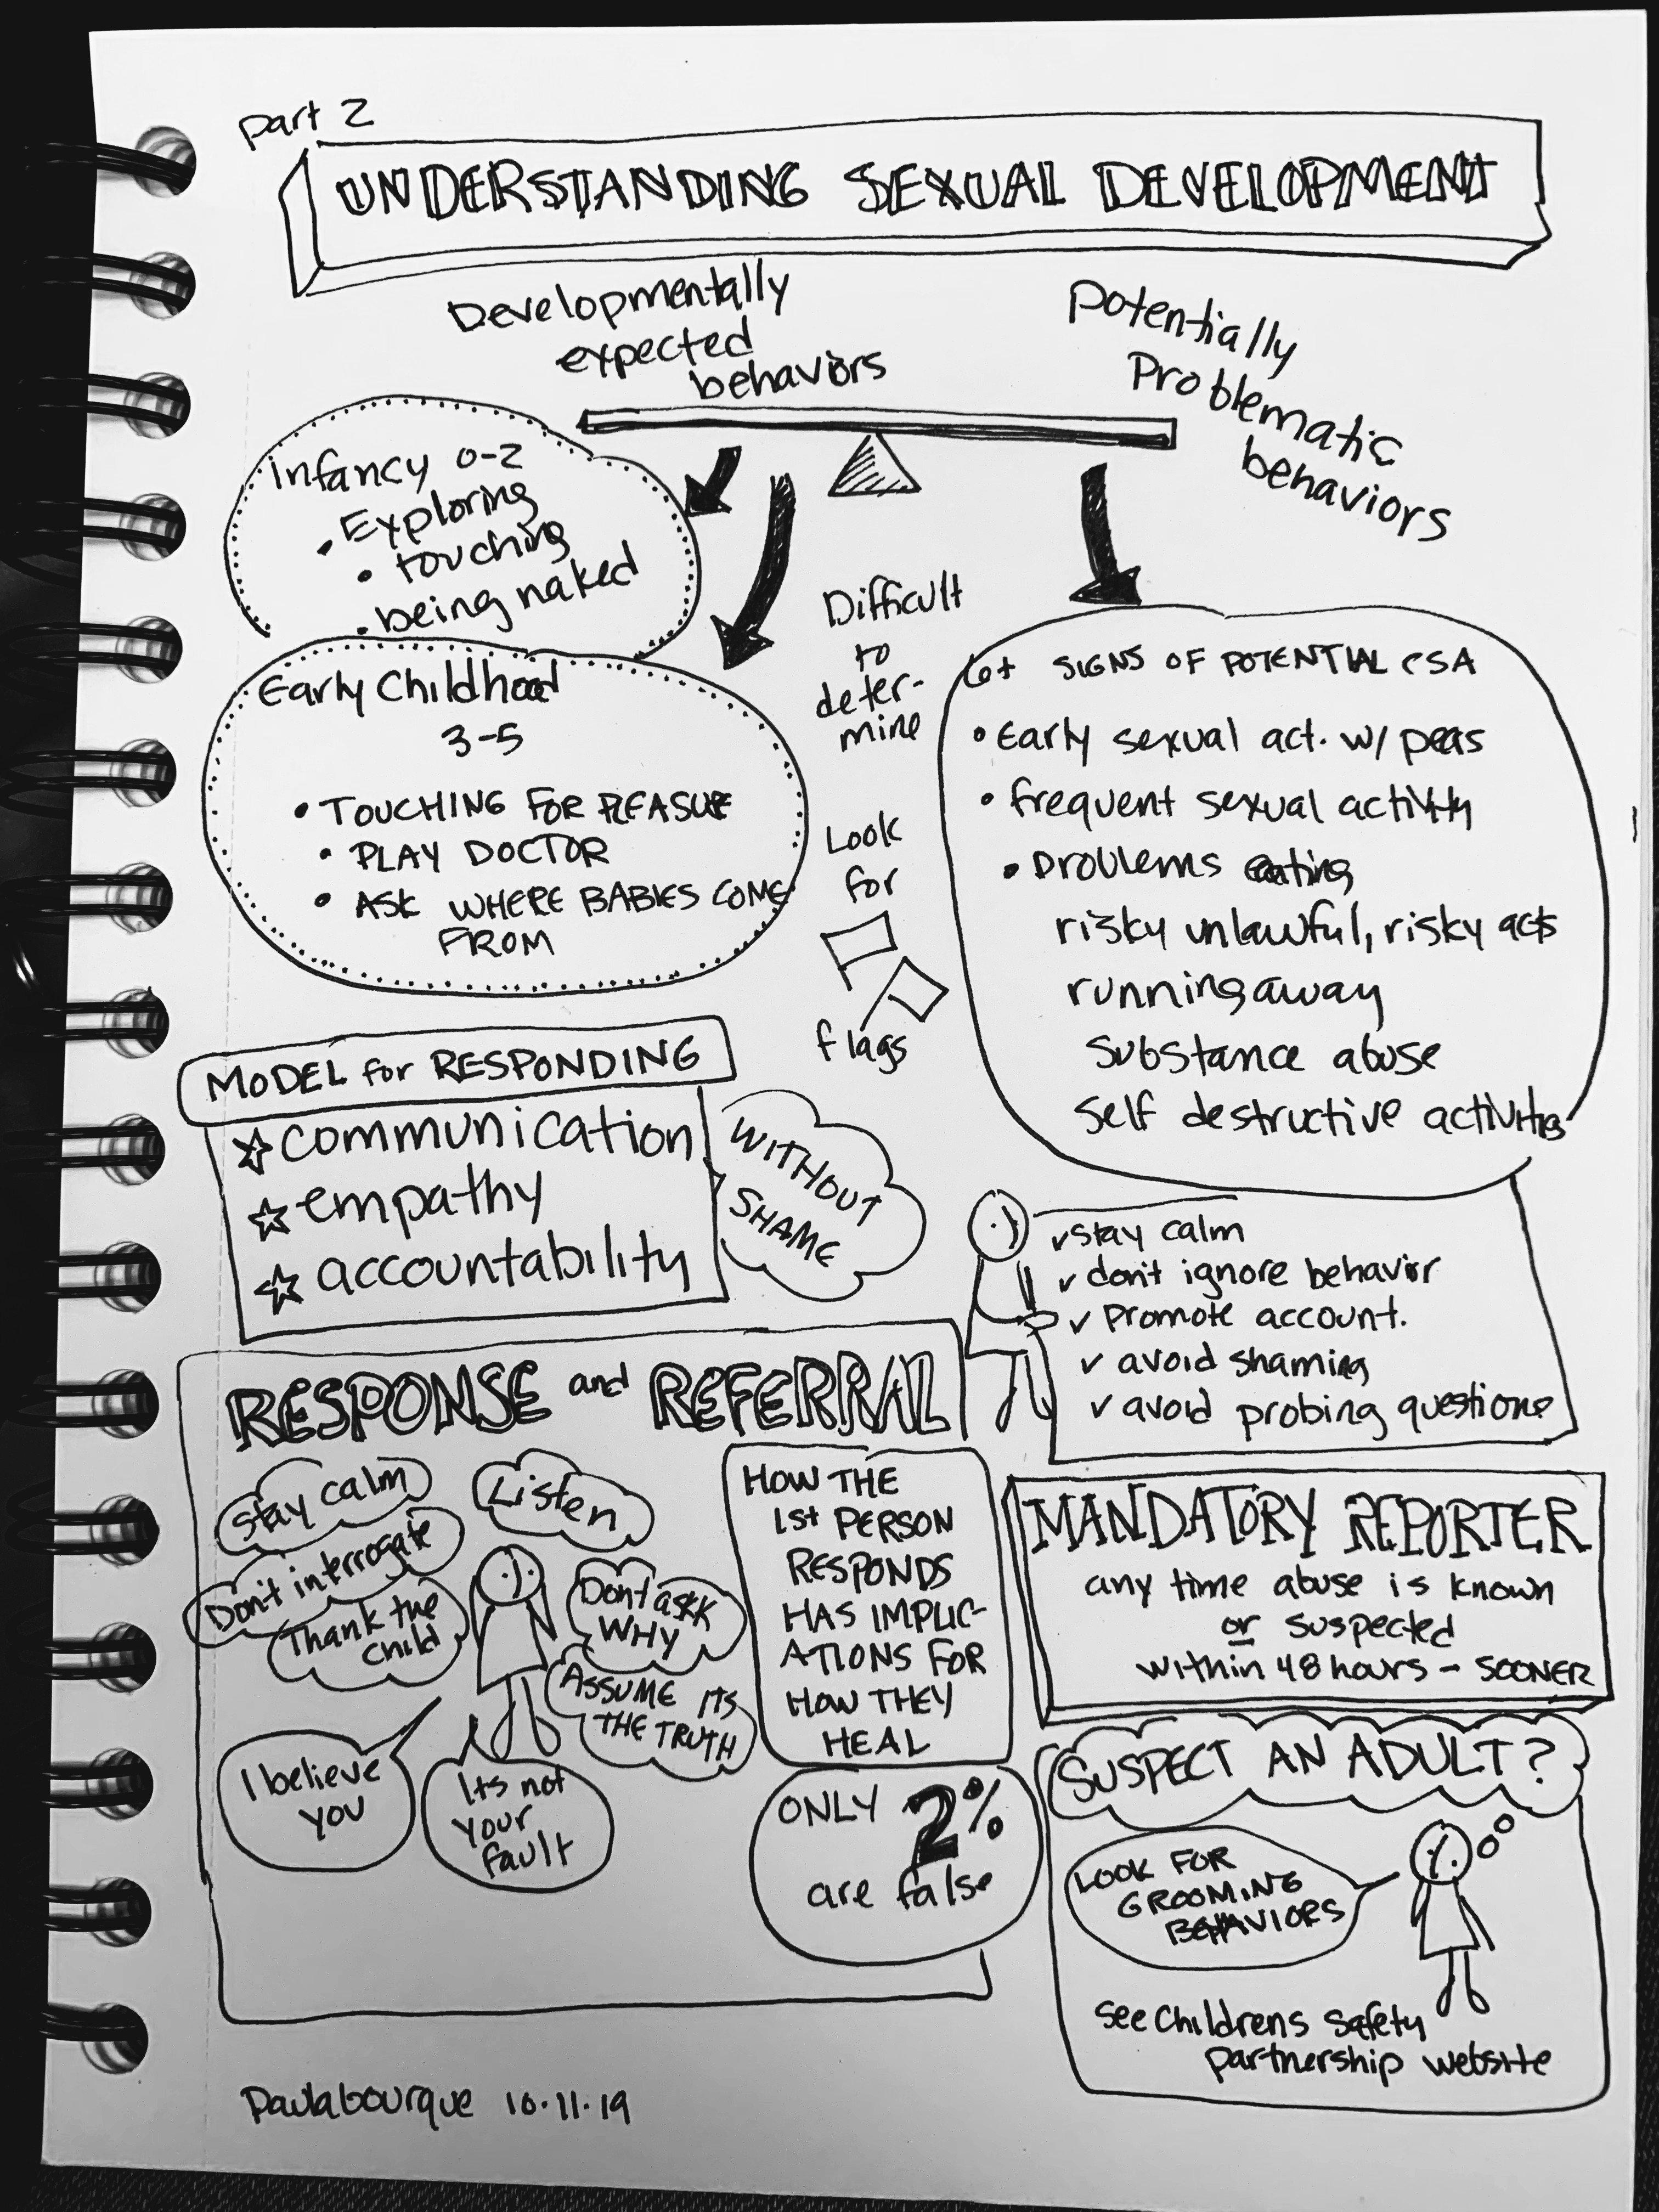 part 2
UNDERSTANDING SEXUAL DEVELOPMENT
Developmentally
expected
behaviors
Potentially
Problematic
behaviors
Infancy 0-2
• Exploring
• touching
• being naked
Early Childhood
3-5
• TOUCHING FOR PLEASURE
• PLAY DOCTOR
• ASK WHERE BABIES COME
FROM
Difficult
to
deter-
mine
Look
for
flags
6+ SIGNS OF POTENTIAL CSA
• Early sexual act. w/ peers
• frequent sexual activity
• problems eating
risky unlawful, risky acts
running away
Substance abuse
Self destructive activities
MODEL for RESPONDING
☆ communication
☆ empathy
☆ accountability
WITHOUT
SHAME
✓ Stay calm
✓ don't ignore behavior
✓ Promote account.
✓ avoid shaming
✓ avoid probing questions
RESPONSE and REFERRAL
Stay calm
Listen
Don't interrogate
Thank the
child
Dont ask
WHY
ASSUME ITS
THE TRUTH
I believe
you
Its not
your
fault
HOW THE
1st PERSON
RESPONDS
HAS IMPLIC-
ATIONS FOR
HOW THEY
HEAL
ONLY 2%
are false
MANDATORY REPORTER
any time abuse is known
or suspected
within 48 hours - SOONER
SUSPECT AN ADULT?
LOOK FOR
GROOMING
BEHAVIORS
See Childrens Safety
partnership website
Paulabourque 10.11.19